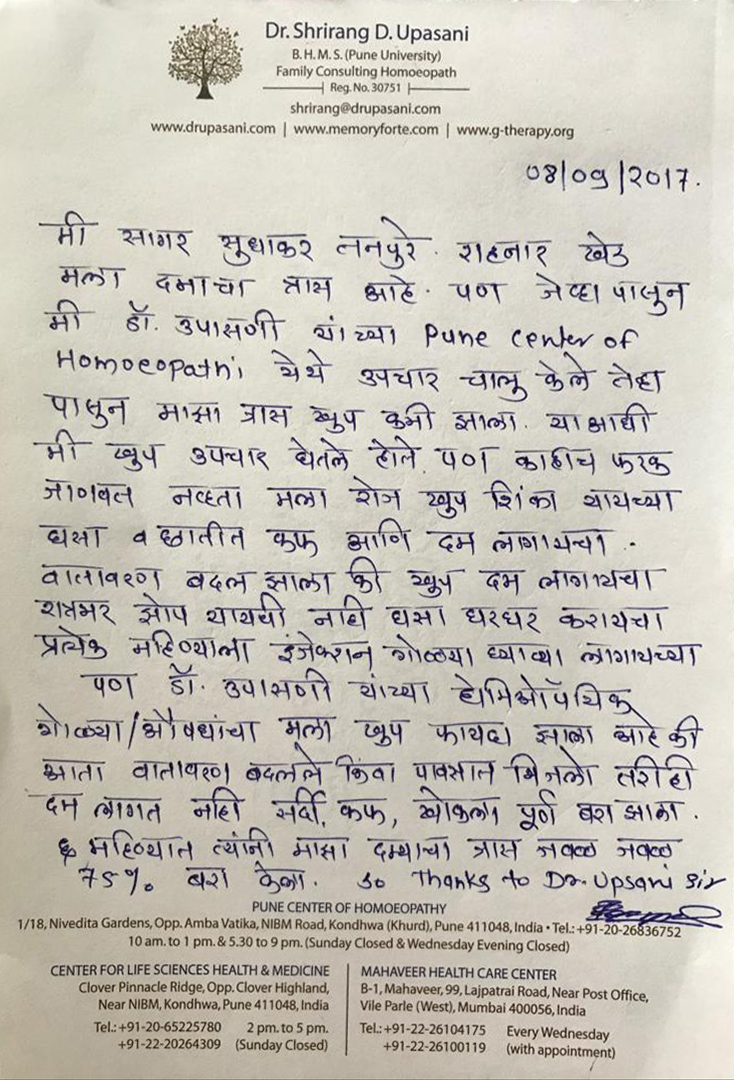 Dr. Shrirang D. Upasani
B.H.M.S. (Pune University)
Family Consulting Homoeopath
Reg. No. 30751
shrirang@drupasani.com
www.drupasani.com | www.memoryforte.com | www.g-therapy.org
08/09/2017.
मी सागर सुधाकर तनपुरे. राहनार खेड
मला दमाचा त्रास आहे. पण जेव्हा पासुन
मी डॉ. उपासणी यांच्या Pune Center of
Homoeopathi येथे उपचार चालु केले तेव्हा
पासुन माझा त्रास खुप कमी झाला. या आधी
मी खुप उपचार घेतले होते. पण काहीच फरक
जाणवत नव्हता मला रोज खुप शिंका यायच्या
घसा व छातीत कफ आणि दम लागायचा.
वातावरण बदल झाला की खुप दम लागायचा
रात्रभर झोप यायची नाही घसा घरघर करायचा
प्रत्येक महिण्याला इंजेक्शन गोळ्या घ्याव्या लागायच्या
पण डॉ. उपासणी यांच्या होमिओपॅथिक
गोळ्या/औषधांचा मला खुप फायदा झाला आहे की
आता वातावरण बदलले किंवा पावसात भिजलो तरीही
दम लागत नाही सर्दी, कफ, खोकला पूर्ण बरा झाला.
६ महिण्यात त्यांनी माझा दम्याचा त्रास जवळ जवळ
75% बरा केला. so Thanks to Dr. Upsani Sir
PUNE CENTER OF HOMOEOPATHY
1/18, Nivedita Gardens, Opp. Amba Vatika, NIBM Road, Kondhwa (Khurd), Pune 411048, India • Tel.: +91-20-26836752
10 am. to 1 pm. & 5.30 to 9 pm. (Sunday Closed & Wednesday Evening Closed)
CENTER FOR LIFE SCIENCES HEALTH & MEDICINE
Clover Pinnacle Ridge, Opp. Clover Highland,
Near NIBM, Kondhwa, Pune 411048, India
Tel.: +91-20-65225780 2 pm. to 5 pm.
+91-22-20264309 (Sunday Closed)
MAHAVEER HEALTH CARE CENTER
B-1, Mahaveer, 99, Lajpatrai Road, Near Post Office,
Vile Parle (West), Mumbai 400056, India
Tel.: +91-22-26104175 Every Wednesday
+91-22-26100119 (with appointment)